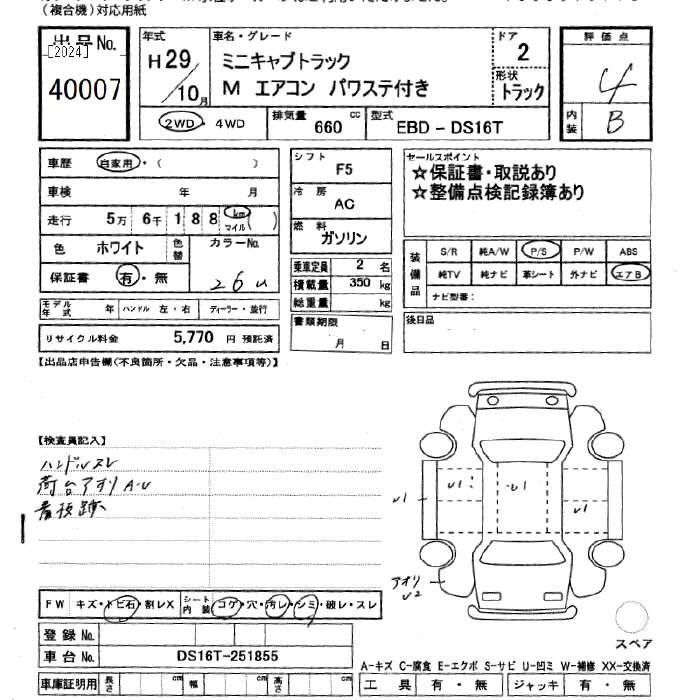 (複合機)対応用紙
出品No.
[2024]
40007
年式
H29/10月
車名・グレード
ミニキャブトラック
M エアコン パワステ付き
ドア
2
形状
トラック
2WD・4WD
排気量 660 cc
型式 EBD-DS16T
評価点
4
内装 B
車歴 自家用・( )
車検 年 月
走行 5万 6千 1 8 8 km マイル ( )
色 ホワイト 色替 カラーNo.
26u
保証書 有・無
シフト F5
冷房 AC
燃料 ガソリン
乗車定員 2 名
積載量 350 kg
総重量 kg
書類期限 月 日
セールスポイント
☆保証書・取説あり
☆整備点検記録簿あり
装備品
S/R 純A/W P/S P/W ABS
純TV 純ナビ 革シート 外ナビ エアB
ナビ型番:
後日品
モデル年式 年 ハンドル 左・右 ディーラー・並行
リサイクル料金 5,770 円 預託済
【出品店申告欄(不良箇所・欠品・注意事項等)】
【検査員記入】
ハンドルスレ
荷台アオリA・U
看板跡
U1
U1
U1
U1
アオリ
U2
スペア
FW キズ・トビ石・割レX シート内装 コゲ・穴・汚レ・シミ・破レ・スレ
登録No.
車台No. DS16T-251855
車庫証明用 長さ cm 幅 cm 高さ cm
A-キズ C-腐食 E-エクボ S-サビ U-凹ミ W-補修 XX-交換済
工具 有・無 ジャッキ 有・無